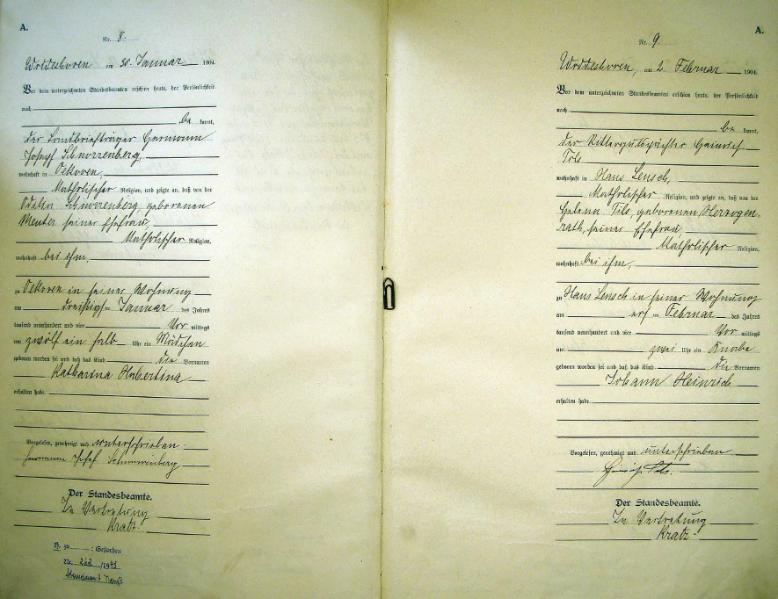 A.
Nr. 8.
am 30. Januar 1904.
Vor dem unterzeichneten Standesbeamten erschien heute, der Persönlichkeit
nach
be kannt,
der Landbriefträger Hermann
Josef Schnorrenberg,
wohnhaft in Oekoven,
Katholischer Religion, und zeigte an, daß von der
Schnorrenberg, geborenen
seiner Ehefrau,
Katholischer Religion,
wohnhaft bei ihm,
zu Oekoven in seiner Wohnung
am Januar des Jahres
tausend neunhundert und vier Vor mittags
um zwölf ein halb Uhr ein Mädchen
geboren worden sei und daß das Kind die Vornamen
Katharina Hubertina
erhalten habe.
Vorgelesen, genehmigt und unterschrieben
Hermann Josef Schnorrenberg
Der Standesbeamte.
In Vertretung
Kratz
Gestorben
Nr.
A.
Nr. 9
am 2. Februar 1904.
Vor dem unterzeichneten Standesbeamten erschien heute, der Persönlichkeit
nach
be kannt,
der Rittergutspächter Heinrich
wohnhaft in Haus Lensch,
Katholischer Religion, und zeigte an, daß von der
geborenen Herzogen-
rath, seiner Ehefrau,
Katholischer Religion,
wohnhaft bei ihm,
zu Haus Lensch in seiner Wohnung
am ersten Februar des Jahres
tausend neunhundert und vier Vor mittags
um zwei Uhr ein Knabe
geboren worden sei und daß das Kind die Vornamen
Johann Heinrich
erhalten habe.
Vorgelesen, genehmigt und unterschrieben
Der Standesbeamte.
In Vertretung
Kratz